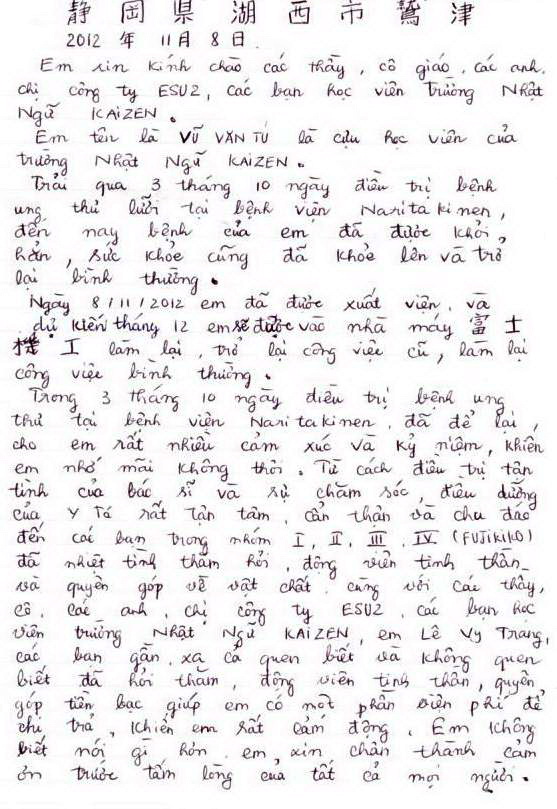 静岡県湖西市鷲津
2012 年 11月 8日.
Em xin kính chào các thầy, cô giáo, các anh,
chị công ty ESU2, các bạn học viên trường Nhật
Ngữ KAIZEN.
Em tên là VŨ VĂN TÚ là cựu học viên của
trường Nhật Ngữ KAIZEN.
Trải qua 3 tháng 10 ngày điều trị bệnh
ung thư lưỡi tại bệnh viện Narita kinen,
đến nay bệnh của em đã được khỏi,
hẳn, sức khỏe cũng đã khỏe lên và trở
lại bình thường.
Ngày 8/11/2012 em đã được xuất viện, và
dự kiến tháng 12 em sẽ được vào nhà máy 富士
機工 làm lại, trở lại công việc cũ, làm lại
công việc bình thường.
Trong 3 tháng 10 ngày điều trị bệnh ung
thư tại bệnh viện Naritakinen, đã để lại,
cho em rất nhiều cảm xúc và kỷ niệm, khiến
em nhớ mãi không thôi. Từ cách điều trị tận
tình của bác sĩ và sự chăm sóc, điều dưỡng
của Y Tá rất tận tâm, cẩn thận và chu đáo
đến các bạn trong nhóm I, II, III, IV (FUJIKIKO)
đã nhiệt tình thăm hỏi, động viên tinh thần
và quyên góp về vật chất, cùng với các thầy,
cô, các anh, chị công ty ESU2, các bạn học
viên trường Nhật Ngữ KAIZEN, em Lê Vy Trang,
các bạn gần, xa cả quen biết và không quen
biết đã hỏi thăm, động viên tinh thần, quyên
góp tiền bạc giúp em có một phần viện phí để
chi trả, khiến em rất cảm động. Em không
biết nói gì hơn, em, xin chân thành cảm
ơn trước tấm lòng của tất cả mọi người.